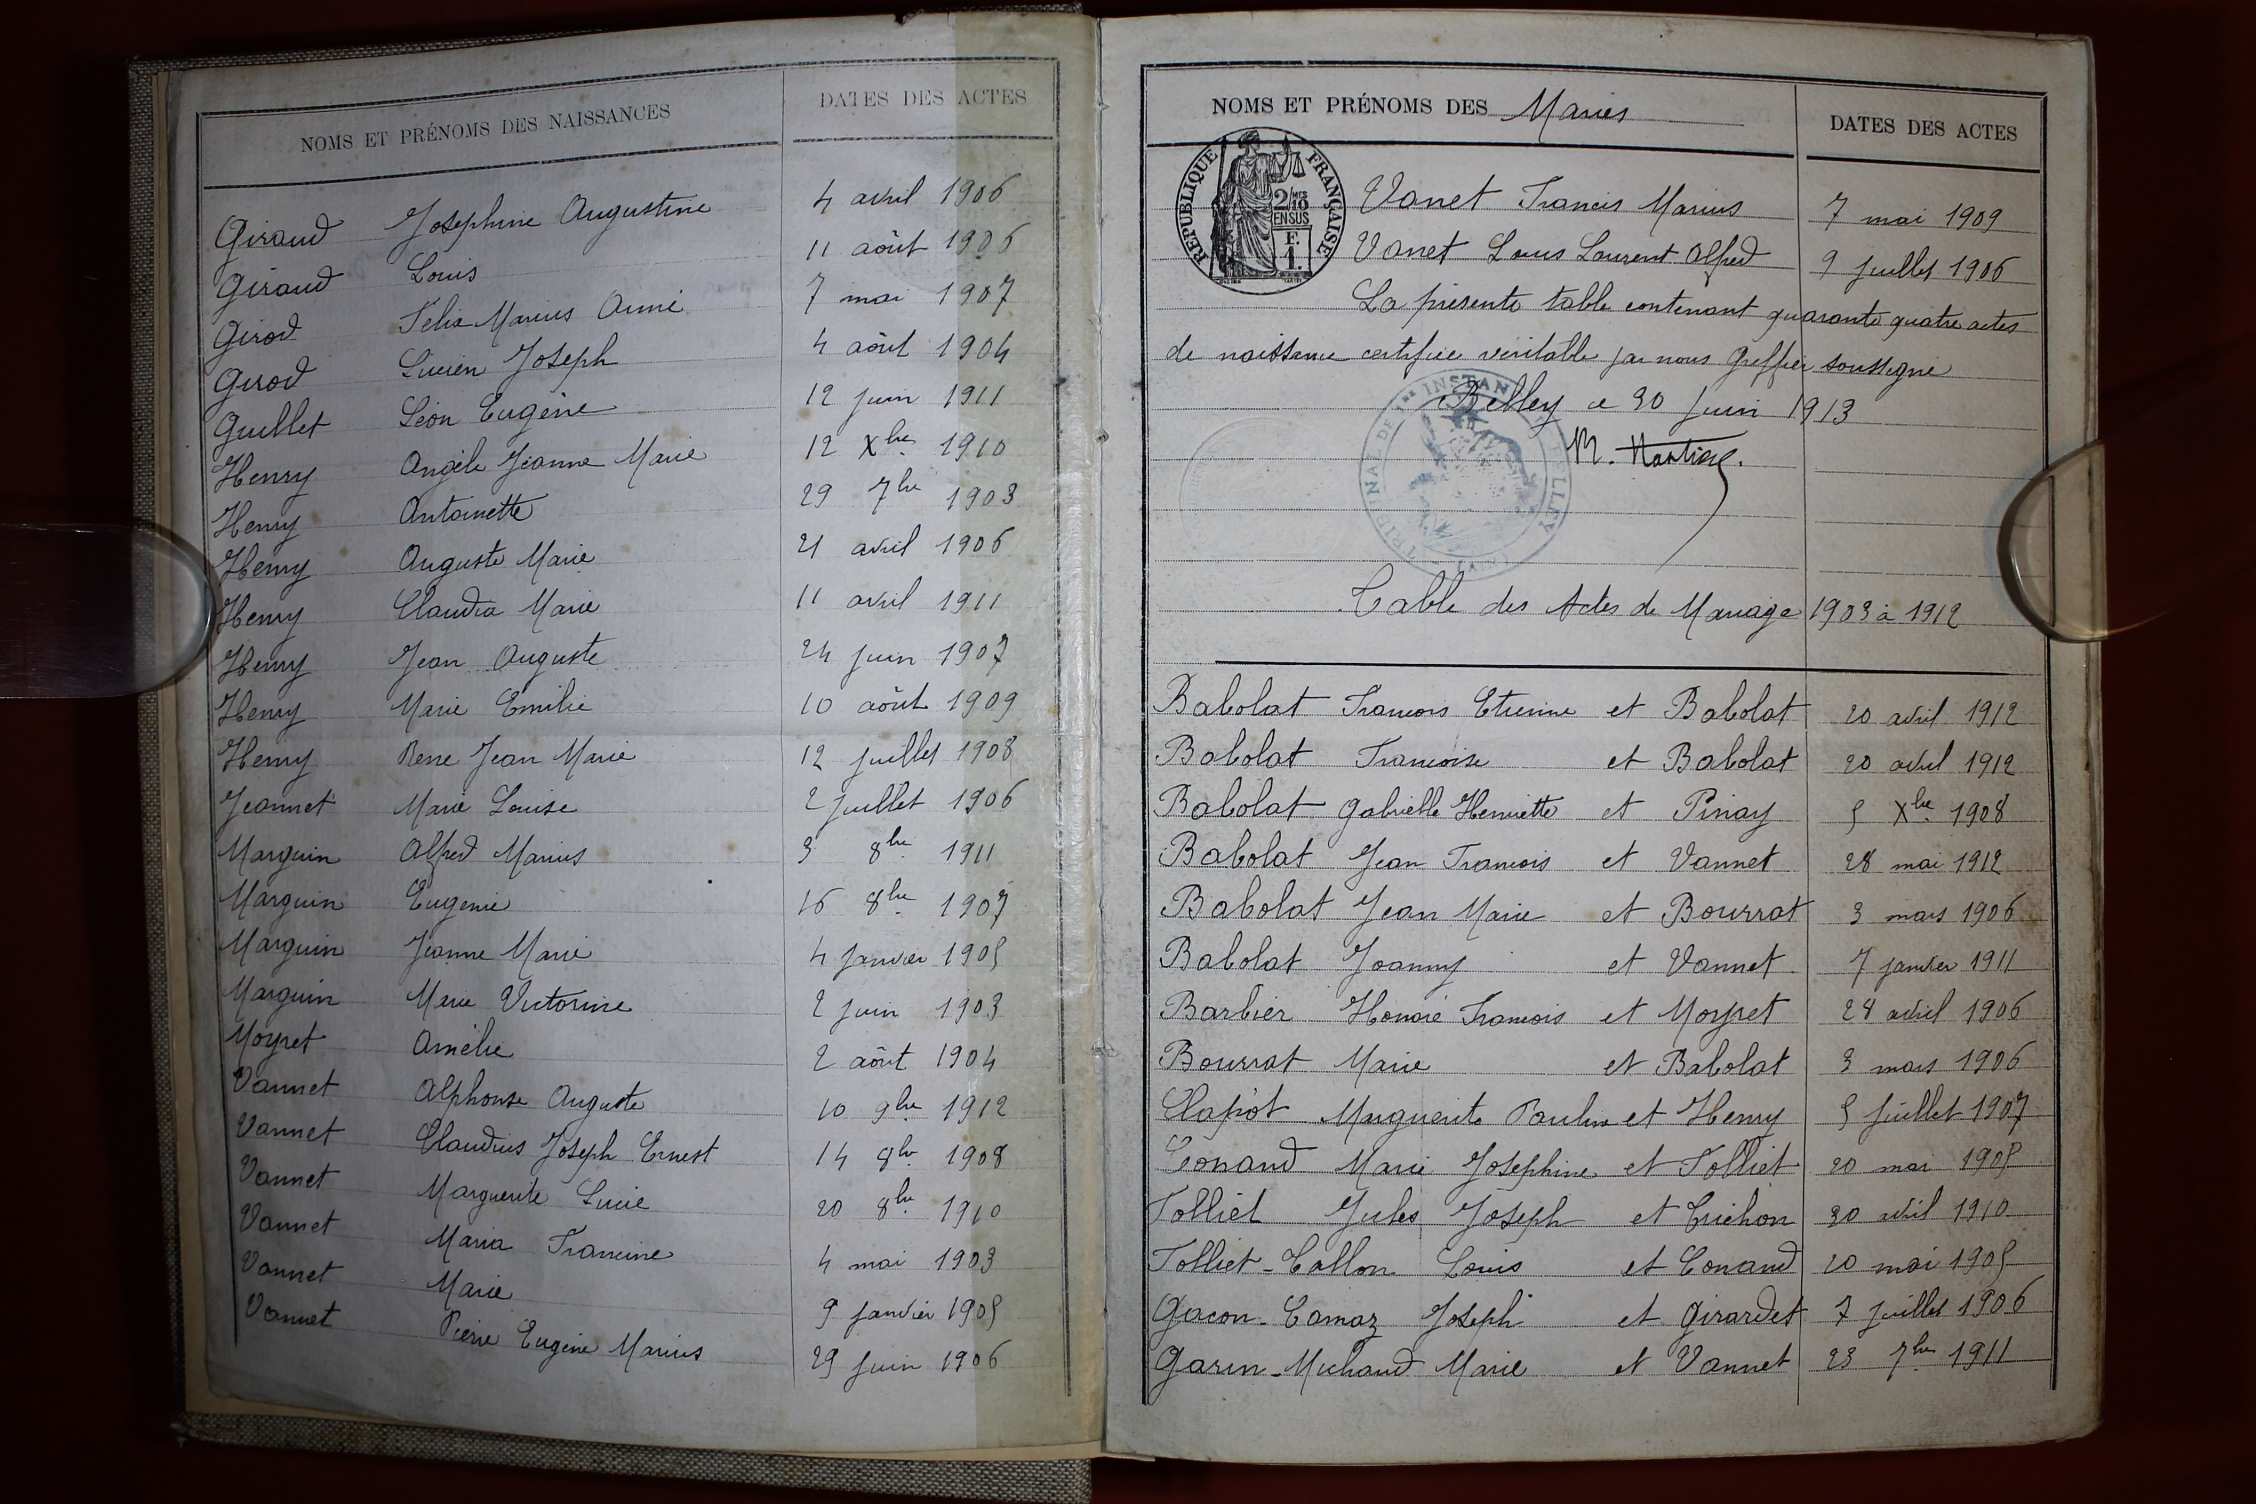 NOMS ET PRÉNOMS DES NAISSANCES DATES DES ACTES
Giraud Josephine Augustine 4 avril 1906
Giraud Louis 11 août 1906
Girod Félix Marius Aimé 7 mai 1907
Girod Lucien Joseph 4 août 1904
Guillet Léon Eugène 12 juin 1911
Henry Angèle Jeanne Marie 12 Xbre 1910
Henry Antoinette 29 7bre 1903
Henry Auguste Marie 21 avril 1906
Henry Claudia Marie 11 avril 1911
Henry Jean Auguste 24 juin 1907
Henry Marie Emilie 10 août 1909
Henry Rene Jean Marie 12 juillet 1908
Jeannet Marie Louise 2 juillet 1906
Marguin Alfred Marius 3 8bre 1911
Marguin Eugenie 16 8bre 1907
Marguin Jeanne Marie 4 janvier 1905
Marguin Marie Victorine 2 juin 1903
Moyret Amélie 2 août 1904
Vannet Alphonse Auguste 10 9bre 1912
Vannet Claudius Joseph Ernest 14 8bre 1908
Vannet Marguerite Lucie 20 8bre 1910
Vannet Maria Francine 4 mai 1903
Vannet Marie 9 janvier 1905
Vannet Pierre Eugène Marius 29 juin 1906
NOMS ET PRÉNOMS DES Mariés DATES DES ACTES
RÉPUBLIQUE FRANÇAISE
2/10 MES
EN SUS
F.
1.
Vanet Francis Marius 7 mai 1909
Vanet Louis Laurent Alfred 9 juillet 1906
La présente table contenant quarante quatre actes
de naissance certifiée véritable par nous Greffier soussigné
Belley ce 30 juin 1913
TRIBUNAL DE 1re INSTANCE BELLEY
Table des Actes de Mariage 1903 à 1912
Babolat Francois Etienne et Babolat 20 avril 1912
Babolat Francoise et Babolat 20 avril 1912
Babolat Gabrielle Henriette et Pinay 5 Xbre 1908
Babolat Jean Francois et Vannet 28 mai 1912
Babolat Jean Marie et Bourrat 3 mars 1906
Babolat Joanny et Vannet 7 janvier 1911
Barbier Honoré Francois et Moyret 28 avril 1906
Bourrat Marie et Babolat 3 mars 1906
Clapot Marguerite Pauline et Henry 5 juillet 1907
Conand Marie Josephine et Folliet 20 mai 1905
Folliet Jules Joseph et Crichon 30 avril 1910
Folliet-Callon Louis et Conand 20 mai 1905
Gacon-Camoz Joseph et Girardet 7 juillet 1906
Garin-Michaud Marie et Vannet 23 7bre 1911